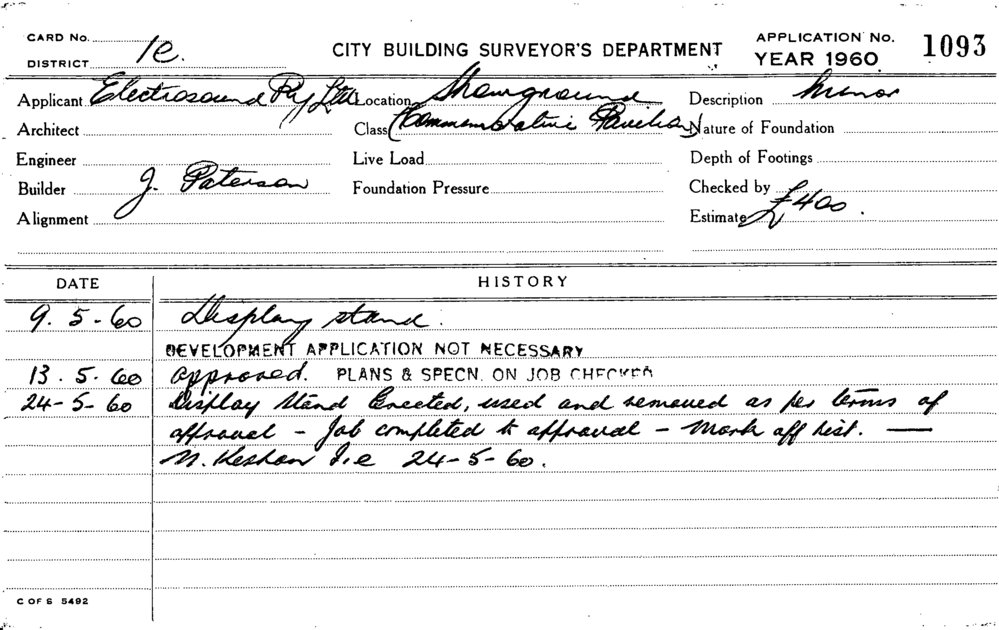 CARD No.
DISTRICT 1e.
CITY BUILDING SURVEYOR'S DEPARTMENT
APPLICATION No. 1093
YEAR 1960
Applicant Electrosound Pty Ltd Location Showground Description Minor
Architect Class (Commemorative Pavilion) Nature of Foundation
Engineer Live Load Depth of Footings
Builder J. Paterson Foundation Pressure Checked by
Alignment Estimate £400.
DATE HISTORY
9. 5-60 Display stand.
DEVELOPMENT APPLICATION NOT NECESSARY
13. 5. 60 approved. PLANS & SPECN. ON JOB CHECKED
24-5-60 Display Stand Erected, used and removed as per terms of
approval - Job completed to approval - Mark off list. —
24-5-60.
C OF S 5492